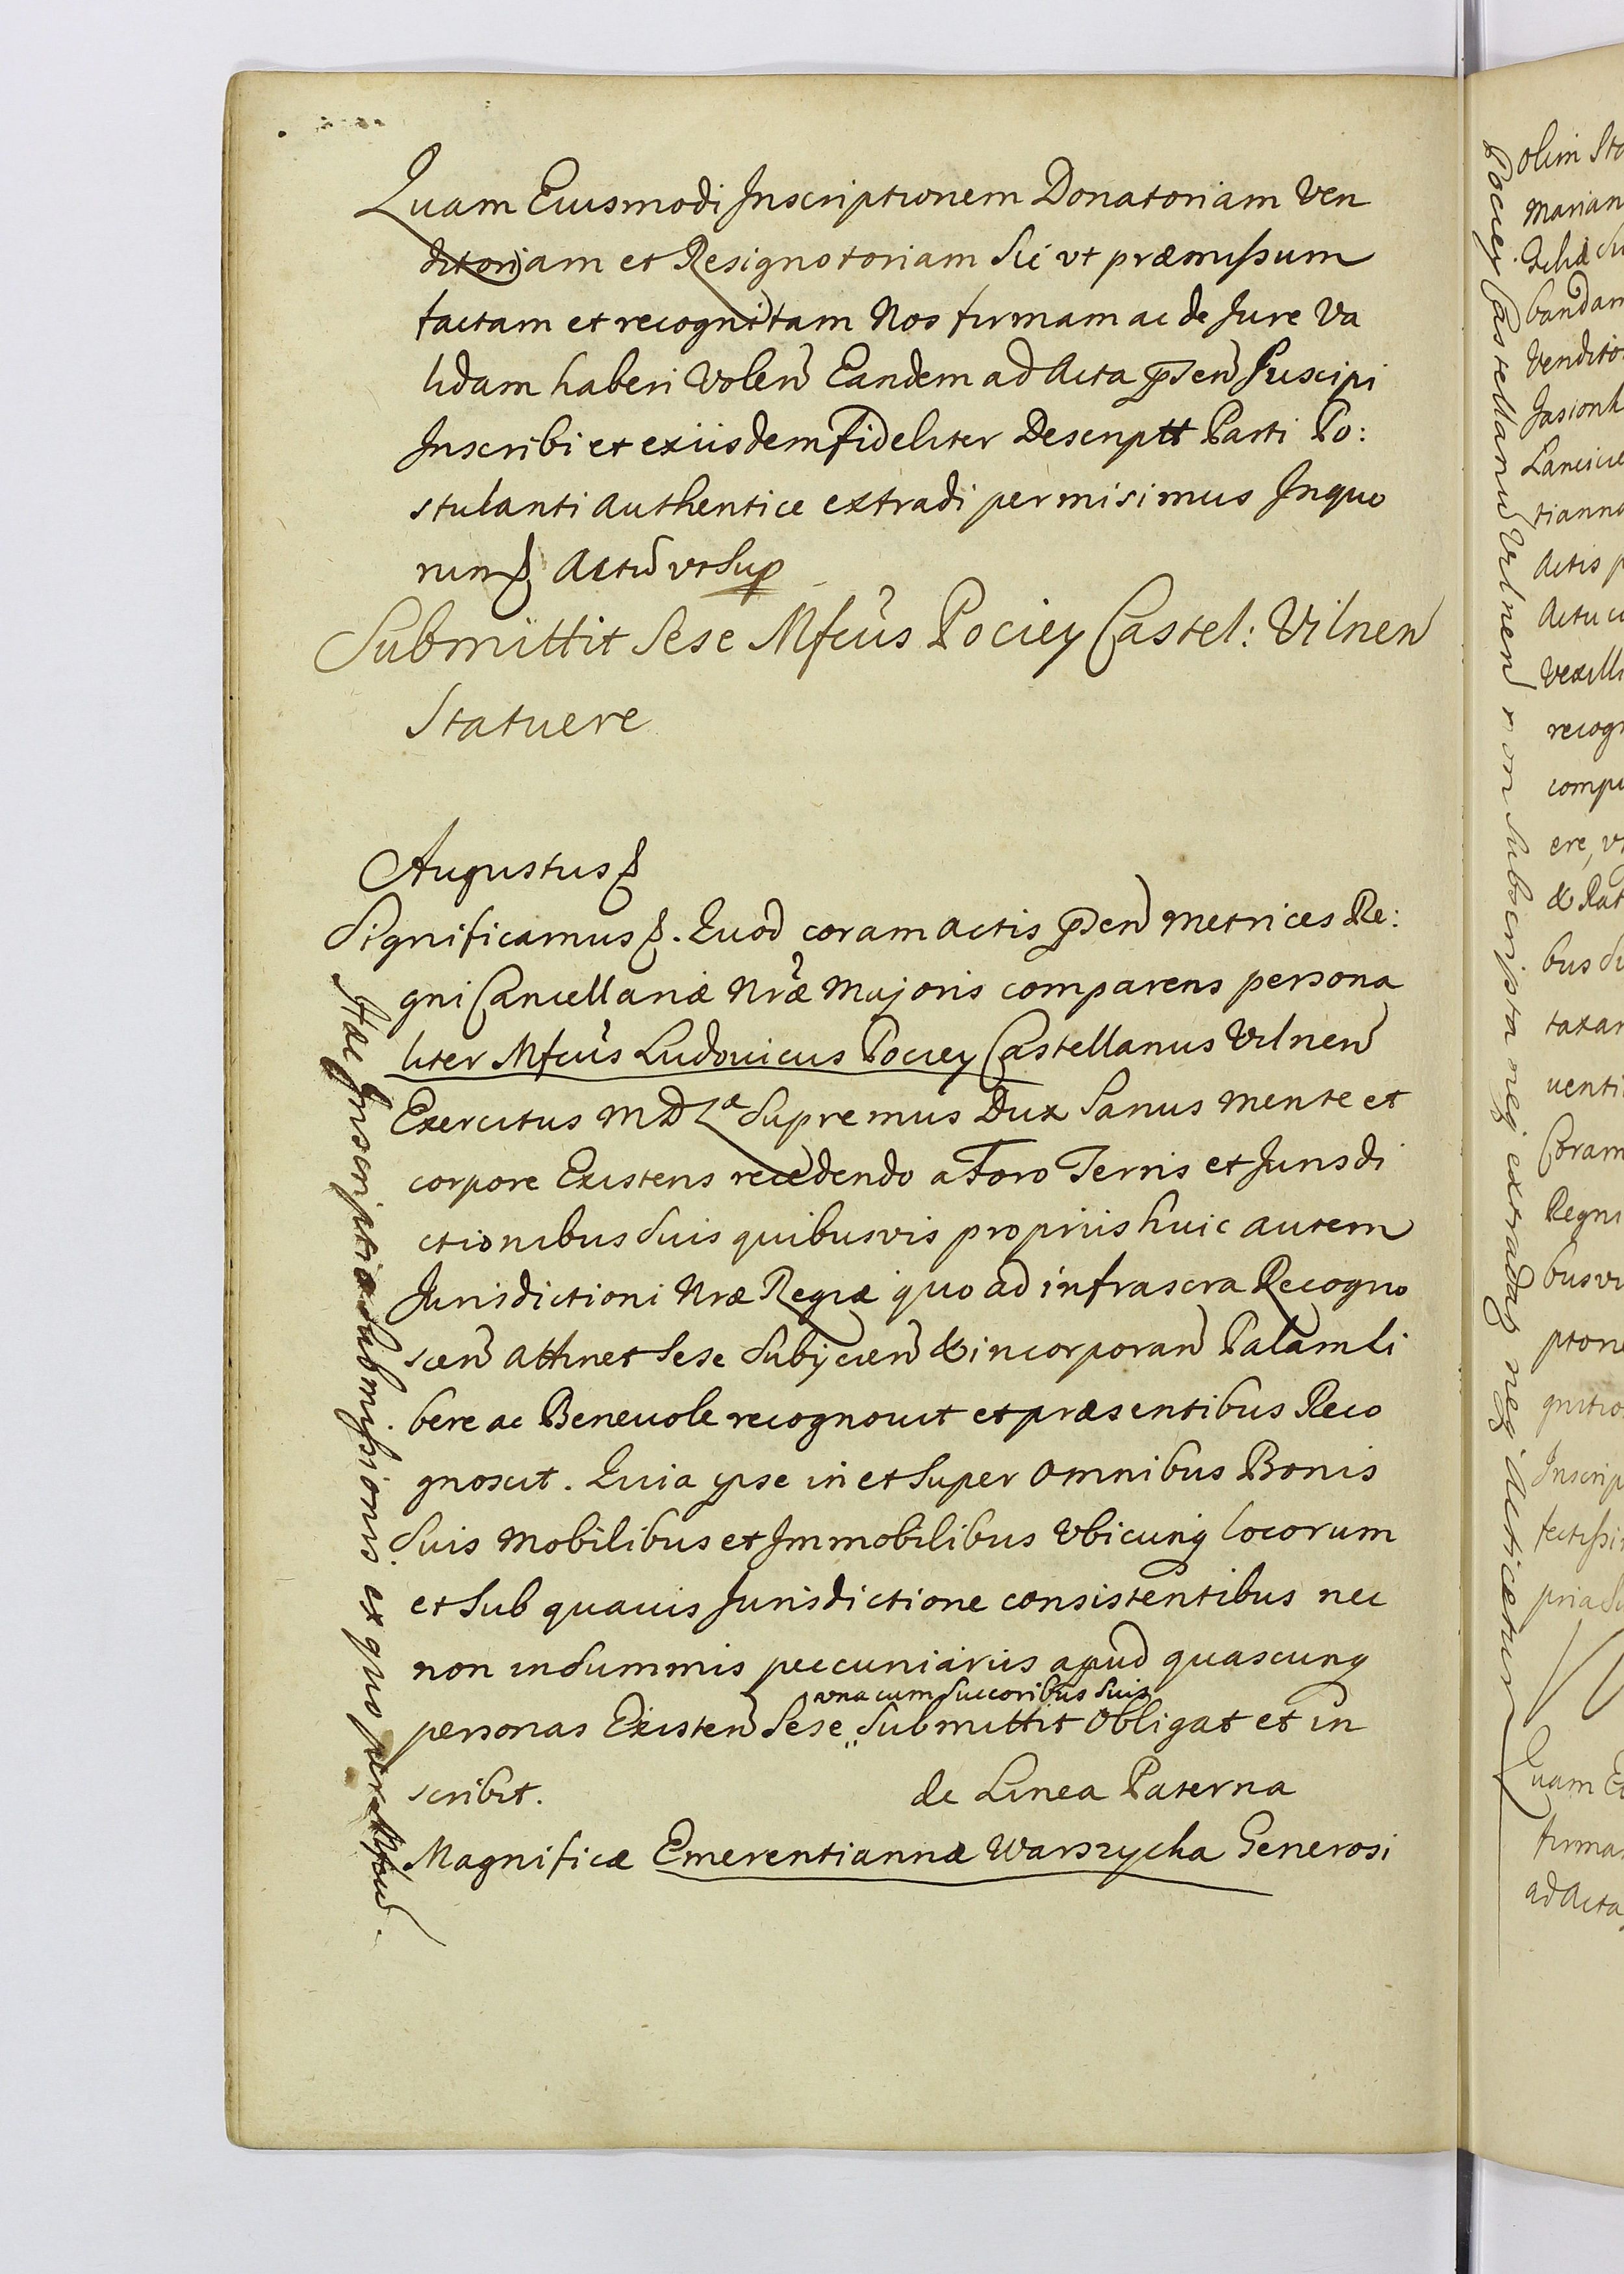 Quam Eiusmodi Inscriptionem Donatoriam Ven
ditoriam et Resignotoriam Sic vt præmissum
factam et recognitam Nos firmam ac de Jure Va
lidam haberi Volen Eandem ad Acta pñsen Suscipi
Inscribi et ex iisdem Fideliter Descriptt Parti Po:
stulanti Authentice extradi permisimus In quo
rum Actũ vt Sup
Submittit Sese Mfcus Pociey Castel: Vilnen
Statuere
Augustus
Significamus. Quod coram Actis pñsen Metrices Re:
gni Cancellariæ Nræ Majoris comparens persona
liter Mfcus Ludouicus Pociey Castellanus Vilnen
Exercitus M D L Supremus Dux Sanus mente et
corpore Existens recedendo a Foro Terris et Jurisdi
ctionibus Suis quibusvis propriis huic autem
Jurisdictioni Nræ Regiæ quo ad infrascra Recogno
scen Attinet Sese Subijcien & incorporan Palam Li
bere ac Beneuole recognouit et præsentibus Reco
gnoscit. Quia ipse in et Super Omnibus Bonis
Suis Mobilibus et Immobilibus Vbicunq locorum
et Sub quauis Jurisdictione consistentibus nec
non in Summis peccuniariis apud quascunq
vna cum Succoribus Suis
personas Existen Sese Submittit Obligat et in
scribit. de Linea Paterna
Magnificæ Emerentiannæ Warszycka Generosi
Hæc Inscriptio Submissionis ex quo per
Pociey Castellanũ Vilnen non Subscripta neq extradatq neq Acticetur
olim
Marian
bandam
Vendito
Jasionk
tianna
Actis p
Actu
Vexilli
recogn
compa
ere, vt
& Rat
bus Su
taxar
uenti
Coram
Regni
busvi
ptone
gnitio
Inscrip
pria Su
Quam E
firmam
ad Acta